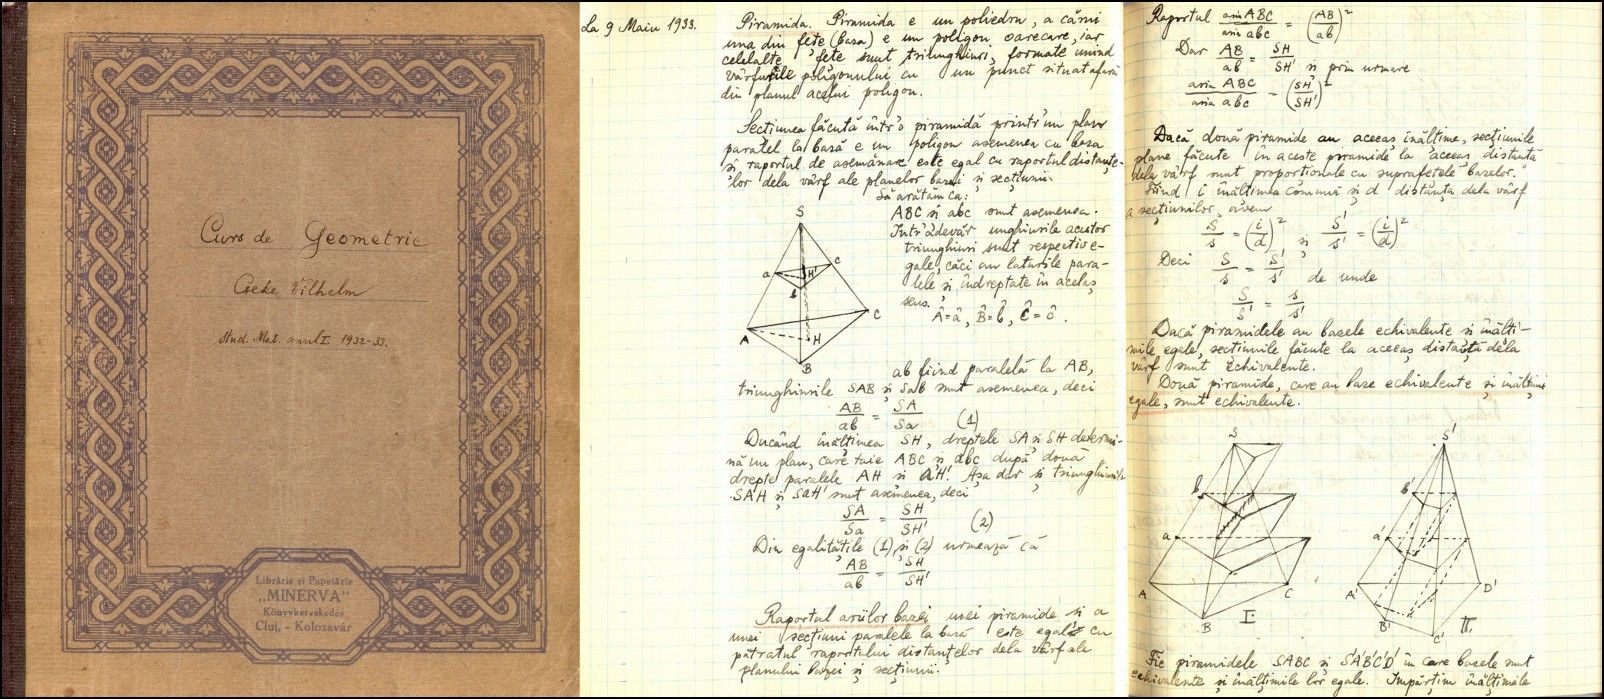 Curs de Geometrie
Cseke Vilhelm
Stud. Mat. anul I. 1932-33.
Librărie și Papetărie
„MINERVA"
Könyvkereskedés
Cluj, - Kolozsvár
La 9 Maiu 1933.
Piramida. Piramida e un poliedru, a cărui
una din fețe (baza) e un poligon oarecare, iar
celelalte fețe sunt triunghiuri, formate unind
vârfurile poligonului cu un punct situat afară
din planul acelui poligon.
Secțiunea făcută într'o piramidă printr'un plan
paralel la bază e un poligon asemenea cu baza
și raportul de asemănare este egal cu raportul distanțe-
lor dela vârf ale planelor bazei și secțiunii.
Să arătăm că:
ABC și abc sunt asemenea.
Într'adevăr unghiurile acestor
triunghiuri sunt respectiv e-
gale, căci au laturile para-
lele și îndreptate în acelaș
sens.
Â=â, B̂=b̂, Ĉ=ĉ.
S
a
H'
c
b
C
A
H
B
ab fiind paralelă la AB,
triunghiurile SAB și Sab sunt asemenea, deci
AB/ab = SA/Sa (1)
Ducând înălțimea SH, dreptele SA și SH determi-
nă un plan, care taie ABC și abc după două
drepte paralele AH și aH'. Așa dar și triunghiurile
SAH și SaH' sunt asemenea, deci
SA/Sa = SH/SH' (2)
Din egalitățile (1) și (2) urmează că
AB/ab = SH/SH'
Raportul ariilor bazei unei piramide și a
unei secțiuni paralele la bază este egal cu
pătratul raportului distanțelor dela vârf ale
planului bazei și secțiunii.
Raportul aria ABC/aria abc = (AB/ab)²
Dar AB/ab = SH/SH' și prin urmare
aria ABC/aria abc = (SH/SH')²
Dacă două piramide au aceeaș înălțime, secțiunile
plane făcute în aceste piramide la aceeaș distanță
dela vârf sunt proporționale cu suprafețele bazelor.
Fiind i înălțimea comună și d distanța dela vârf
a secțiunilor, avem
S/s = (i/d)² și S'/s' = (i/d)²
Deci S/s = S'/s' de unde
S/S' = s/s'
Dacă piramidele au bazele echivalente și înălți-
mile egale, secțiunile făcute la aceeaș distanță dela
vârf sunt echivalente.
Două piramide, care au baze echivalente și înălțimi
egale, sunt echivalente.
S
b
a
A
B
C
I
S'
b'
a'
A'
B'
C'
D'
II.
Fie piramidele SABC și S'A'B'C'D' în care bazele sunt
echivalente și înălțimile lor egale. Împărțim înălțimile